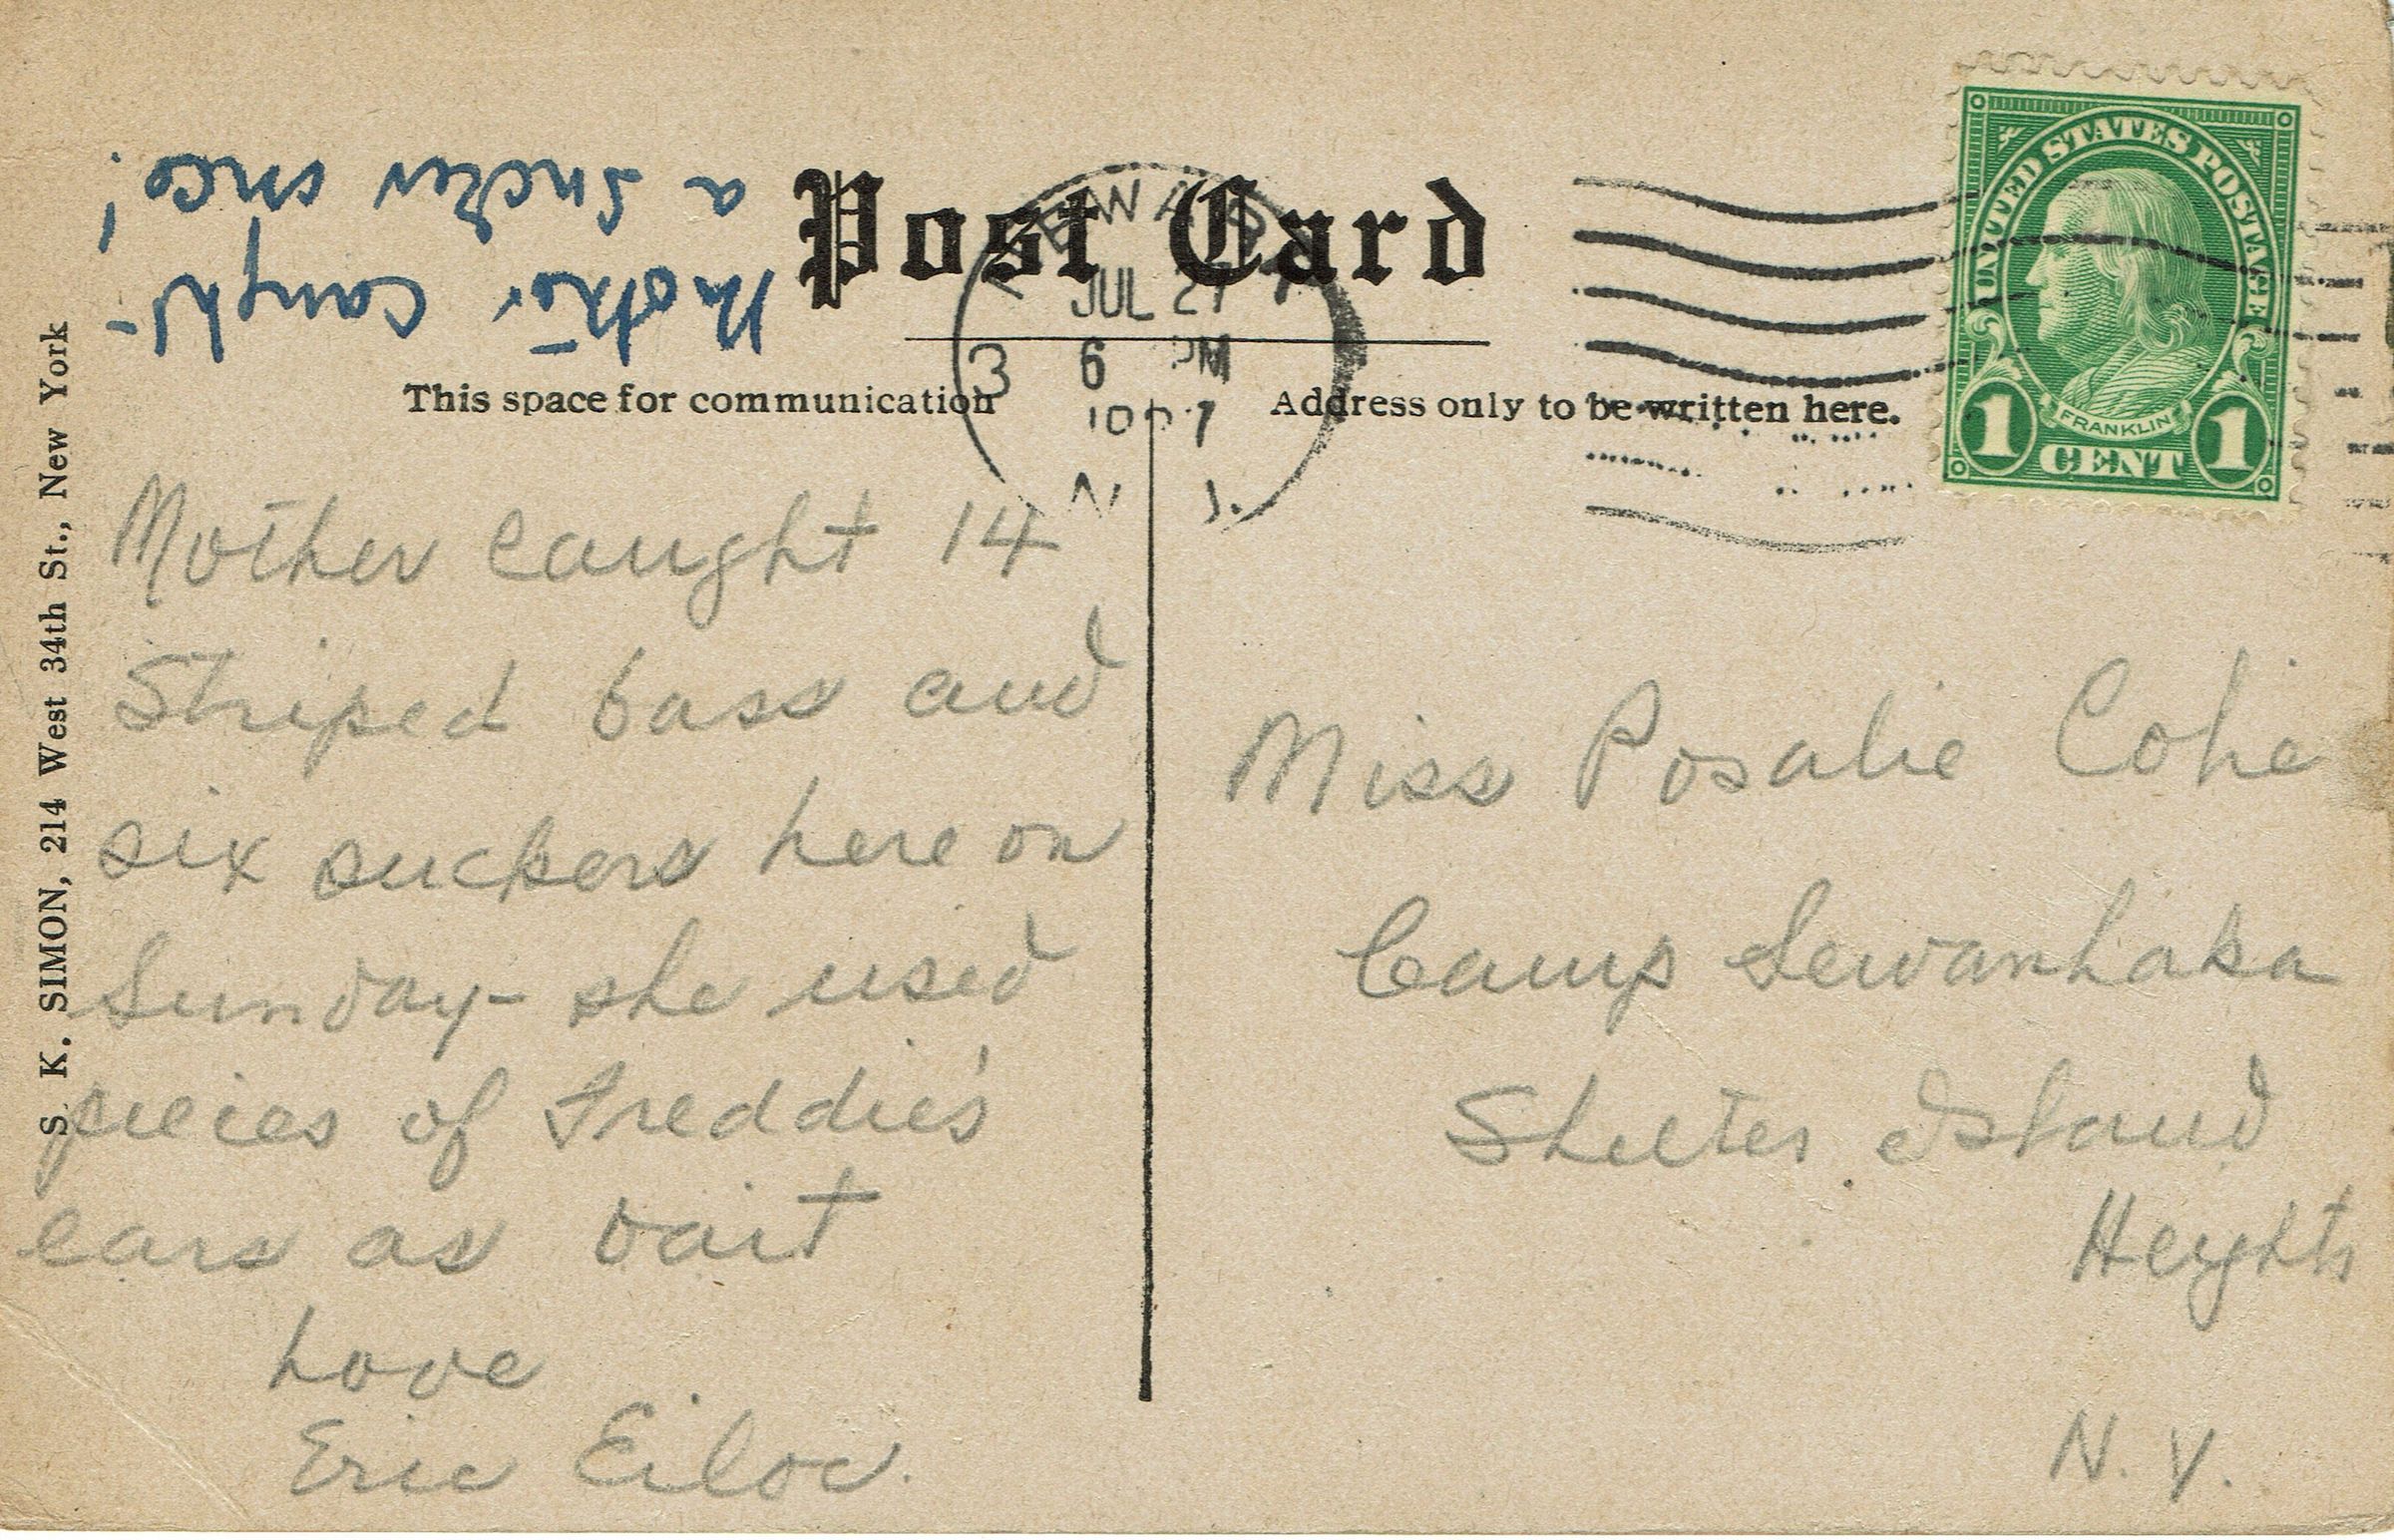 Mother caught
a sucker once!
Post Card
NEWARK
JUL 27
3 6 PM
N. J.
UNITED STATES POSTAGE
FRANKLIN
1 CENT 1
This space for communication
Address only to be written here.
S. K. SIMON, 214 West 34th St., New York
Mother caught 14
Striped bass and
six suckers here on
Sunday - she used
pieces of Freddie's
ears as bait
Love
Eric
Miss Rosalie
Camp Sewanhaka
Shelter Island
Heights
N. Y.